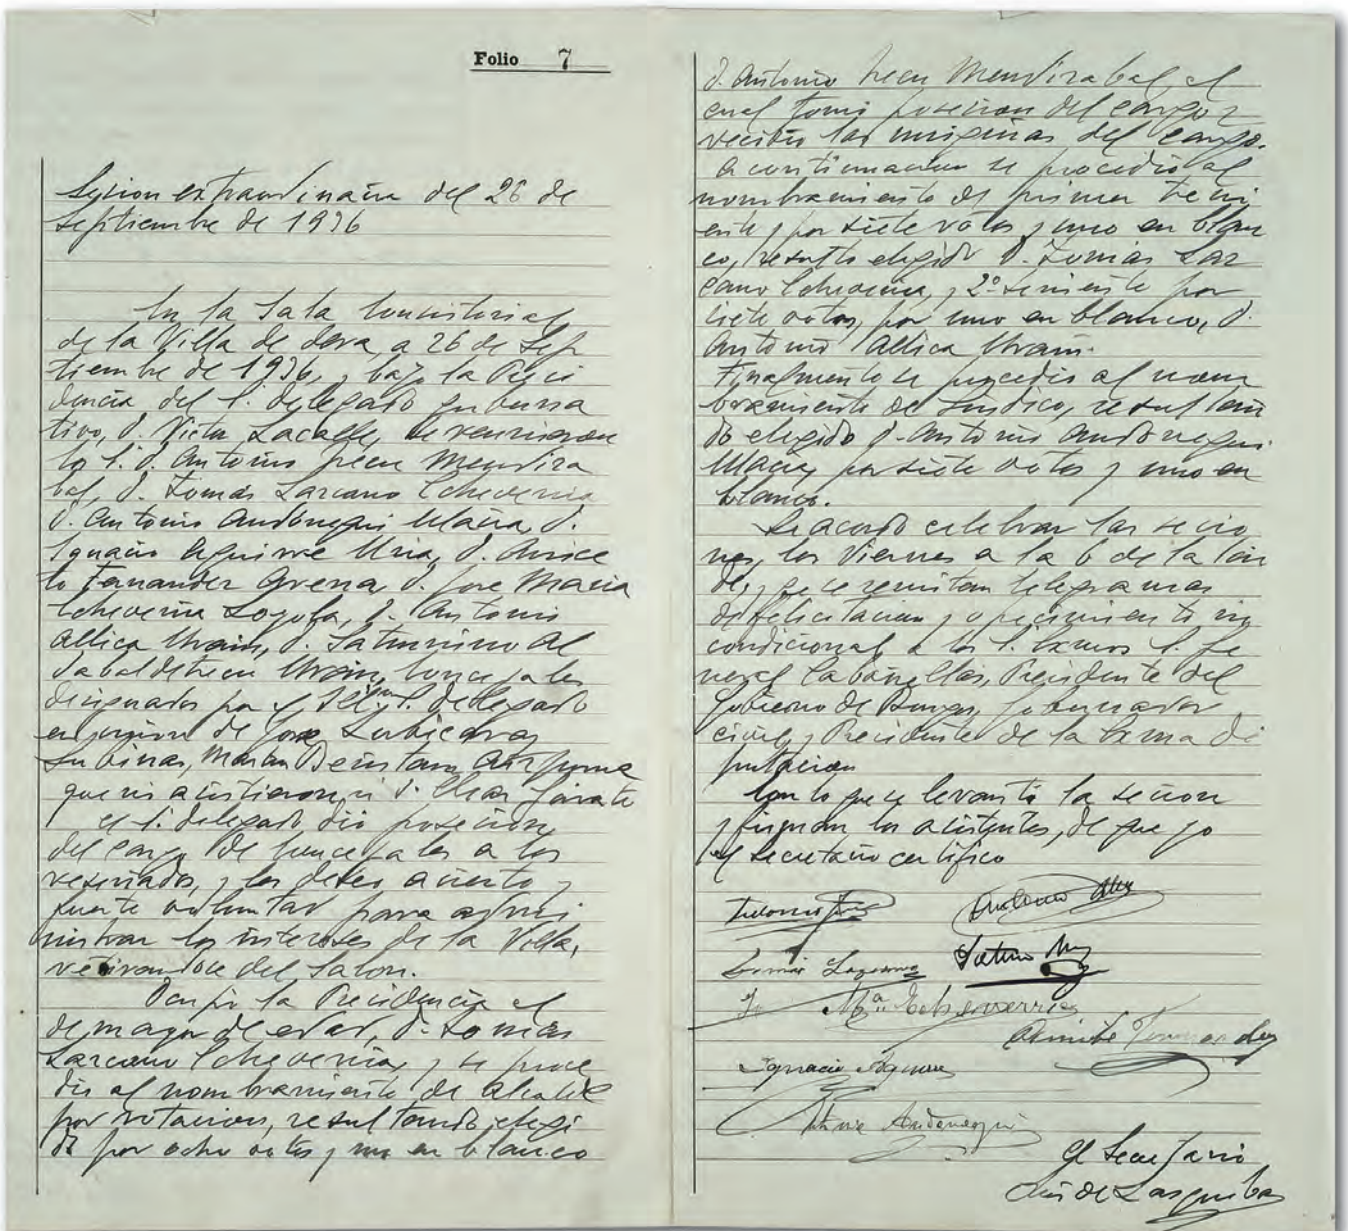 Folio 7
Sesion extraordinaria del 26 de
Septiembre de 1936
En la Sala Consistorial
de la Villa de Deva, a 26 de Sep
tiembre de 1936, y bajo la Presi
dencia del S. delegado guberna
tivo, D. Victor Lacalle, se reunieron
los S. D. Antonio Mendiza
bal, D. Tomás Larcano Echeverria
D. Antonio Andonegui Macia, D.
Ignacio Aguirre Uria, D. Anice
to Fernandez D. Jose Maria
Echeverria Loyola, D. Antonio
Allica Urain, D. Saturnino Al
dabaldetrecu Urain, concejales
designados por el S. Delegado
en union de Jose
Subinas, Beristain
que no asistieron ni D. Garate
El S. delegado dió posesion
del cargo de concejales a los
reseñados, y les deseo acierto y
fuerte voluntad para admi
nistrar los intereses de la Villa,
retirandose del Salon.
Ocupó la Presidencia el
de mayor de edad, D. Tomás
Larcano Echeverria, y se proce
dio al nombramiento de Alcalde
por votacion, resultando elegi
do por ocho votos y uno en blanco
D. Antonio Mendizabal, el
cual tomó posesion del cargo y
recibió las insignias del cargo.
A continuacion se procedió al
nombramiento de primer teni
ente, y por siete votos y uno en blan
co, resultó elegido D. Tomás Lar
cano Echeverria, y 2º teniente por
siete votos, por uno en blanco, D.
Antonio Allica Urain.
Finalmente se procedió al nom
bramiento de Síndico, resultan
do elegido D. Antonio Andonegui
Macia, por siete votos y uno en
blanco.
Se acordó celebrar las sesio
nes, los Viernes a la 6 de la tar
de, y que se remitan telegramas
de felicitacion y ofrecimiento in
condicional a los S. Exmos S. Ge
neral Cabanellas, Presidente del
Gobierno de Burgos, Gobernador
civil, y Presidente de la Exma Di
putacion
Con lo que se levantó la sesion
y firman los asistentes, de que yo
el secretario certifico
Antonio
Tomás Larcano
Mª Echeverria
Aniceto Fernandez
Ignacio Aguirre
Antonio Andonegui
El Secretario